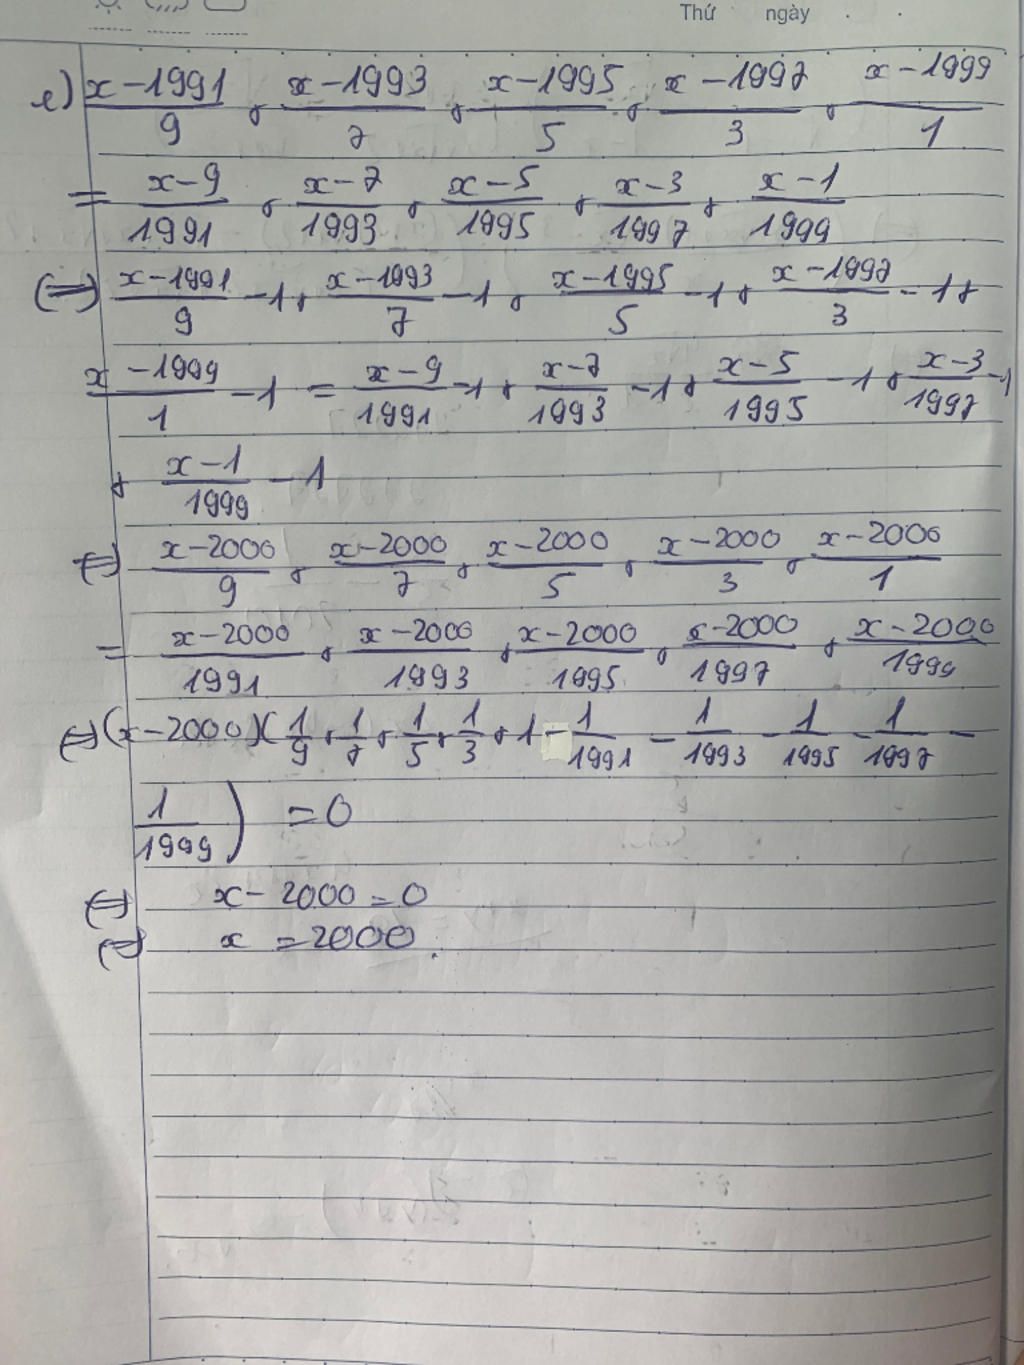 Thứ ngày
e) \frac{x-1991}{9} + \frac{x-1993}{7} + \frac{x-1995}{5} + \frac{x-1997}{3} + \frac{x-1999}{1}
= \frac{x-9}{1991} + \frac{x-7}{1993} + \frac{x-5}{1995} + \frac{x-3}{1997} + \frac{x-1}{1999}
(⇔) \frac{x-1991}{9} - 1 + \frac{x-1993}{7} - 1 + \frac{x-1995}{5} - 1 + \frac{x-1997}{3} - 1 +
\frac{x-1999}{1} - 1 = \frac{x-9}{1991} - 1 + \frac{x-7}{1993} - 1 + \frac{x-5}{1995} - 1 + \frac{x-3}{1997} - 1
+ \frac{x-1}{1999} - 1
⇔ \frac{x-2000}{9} + \frac{x-2000}{7} + \frac{x-2000}{5} + \frac{x-2000}{3} + \frac{x-2000}{1}
= \frac{x-2000}{1991} + \frac{x-2000}{1993} + \frac{x-2000}{1995} + \frac{x-2000}{1997} + \frac{x-2000}{1999}
⇔ (x-2000)(\frac{1}{9} + \frac{1}{7} + \frac{1}{5} + \frac{1}{3} + 1 - \frac{1}{1991} - \frac{1}{1993} - \frac{1}{1995} - \frac{1}{1997} -
\frac{1}{1999}) = 0
⇔ x - 2000 = 0
⇔ x = 2000.